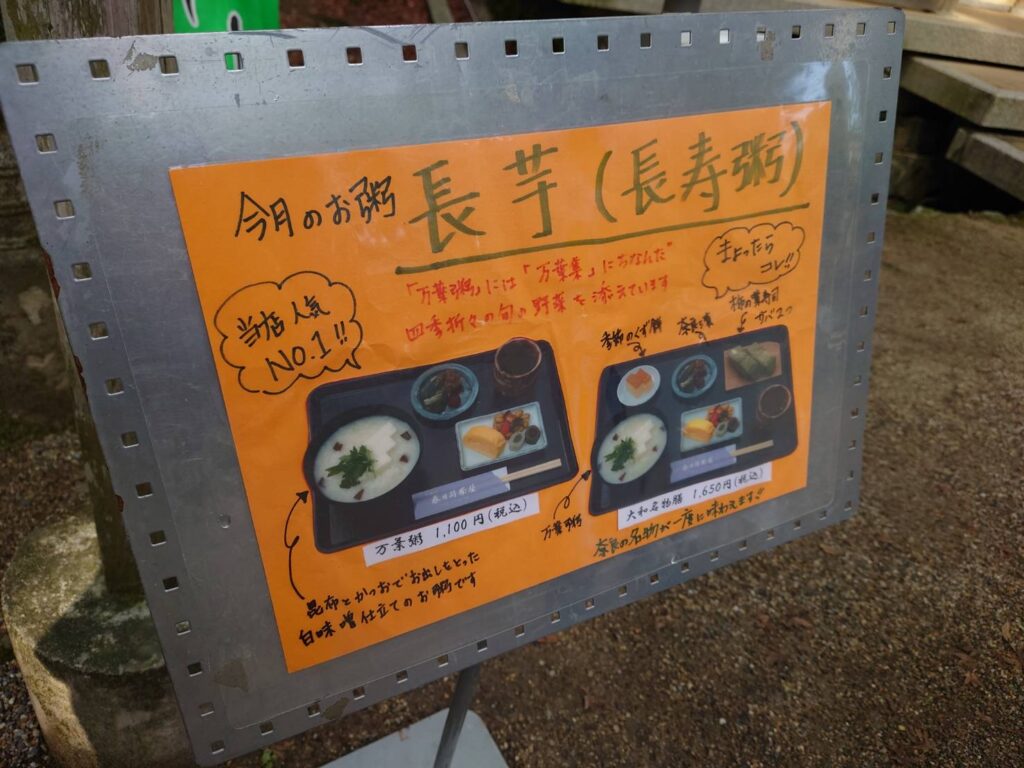 今月のお粥 長芋（長寿粥）
「万葉粥」には「万葉集」にちなんだ
四季折々の旬の野菜を添えています
当店人気
NO.1!!
まよったら
コレ!!
季節のくず餅
奈良漬
柿の葉寿司
サバ2つ
万葉粥 1,100円(税込)
万葉粥
大和名物膳 1,650円(税込)
奈良の名物が一度に味わえます!!
昆布とかつおでお出しをとった
白味噌仕立てのお粥です